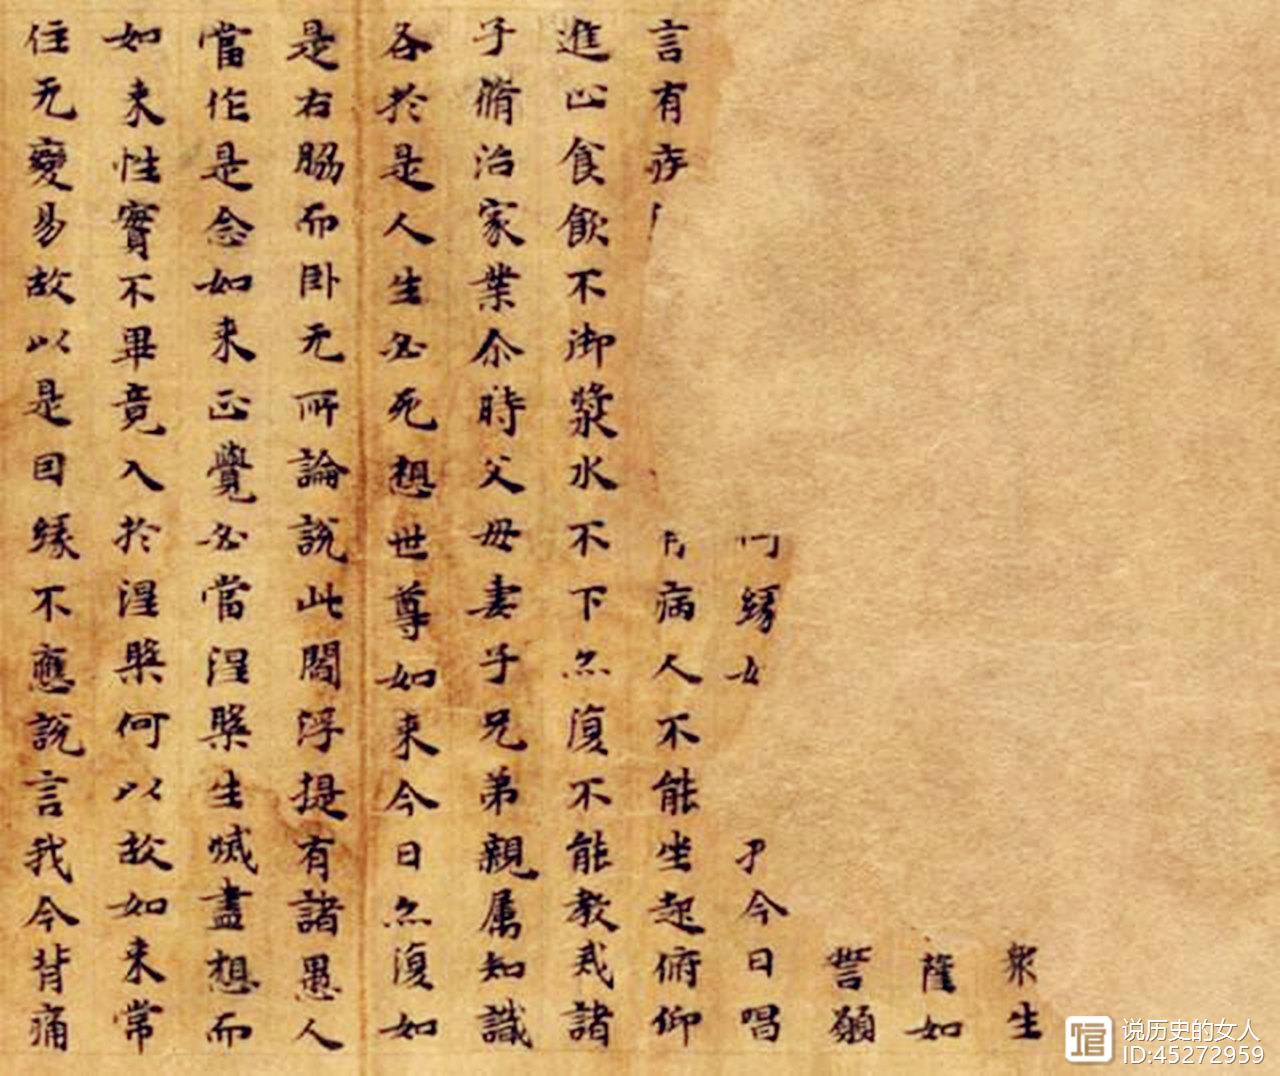 眾生
隆如
誓願
緣 今日唱
言有疾 病人不能坐起俯仰
進止食飲不御漿水不下亦復不能教戒諸
子脩治家業尒時父母妻子兄弟親属知識
各於是人生必死想世尊如来今日亦復如
是右脇而卧无所論說此閻浮提有諸愚人
當作是念如来正覺必當涅槃生滅盡想而
如来性實不畢竟入於涅槃何以故如来常
住无變易故以是因緣不應說言我今背痛
说历史的女人
ID:45272959